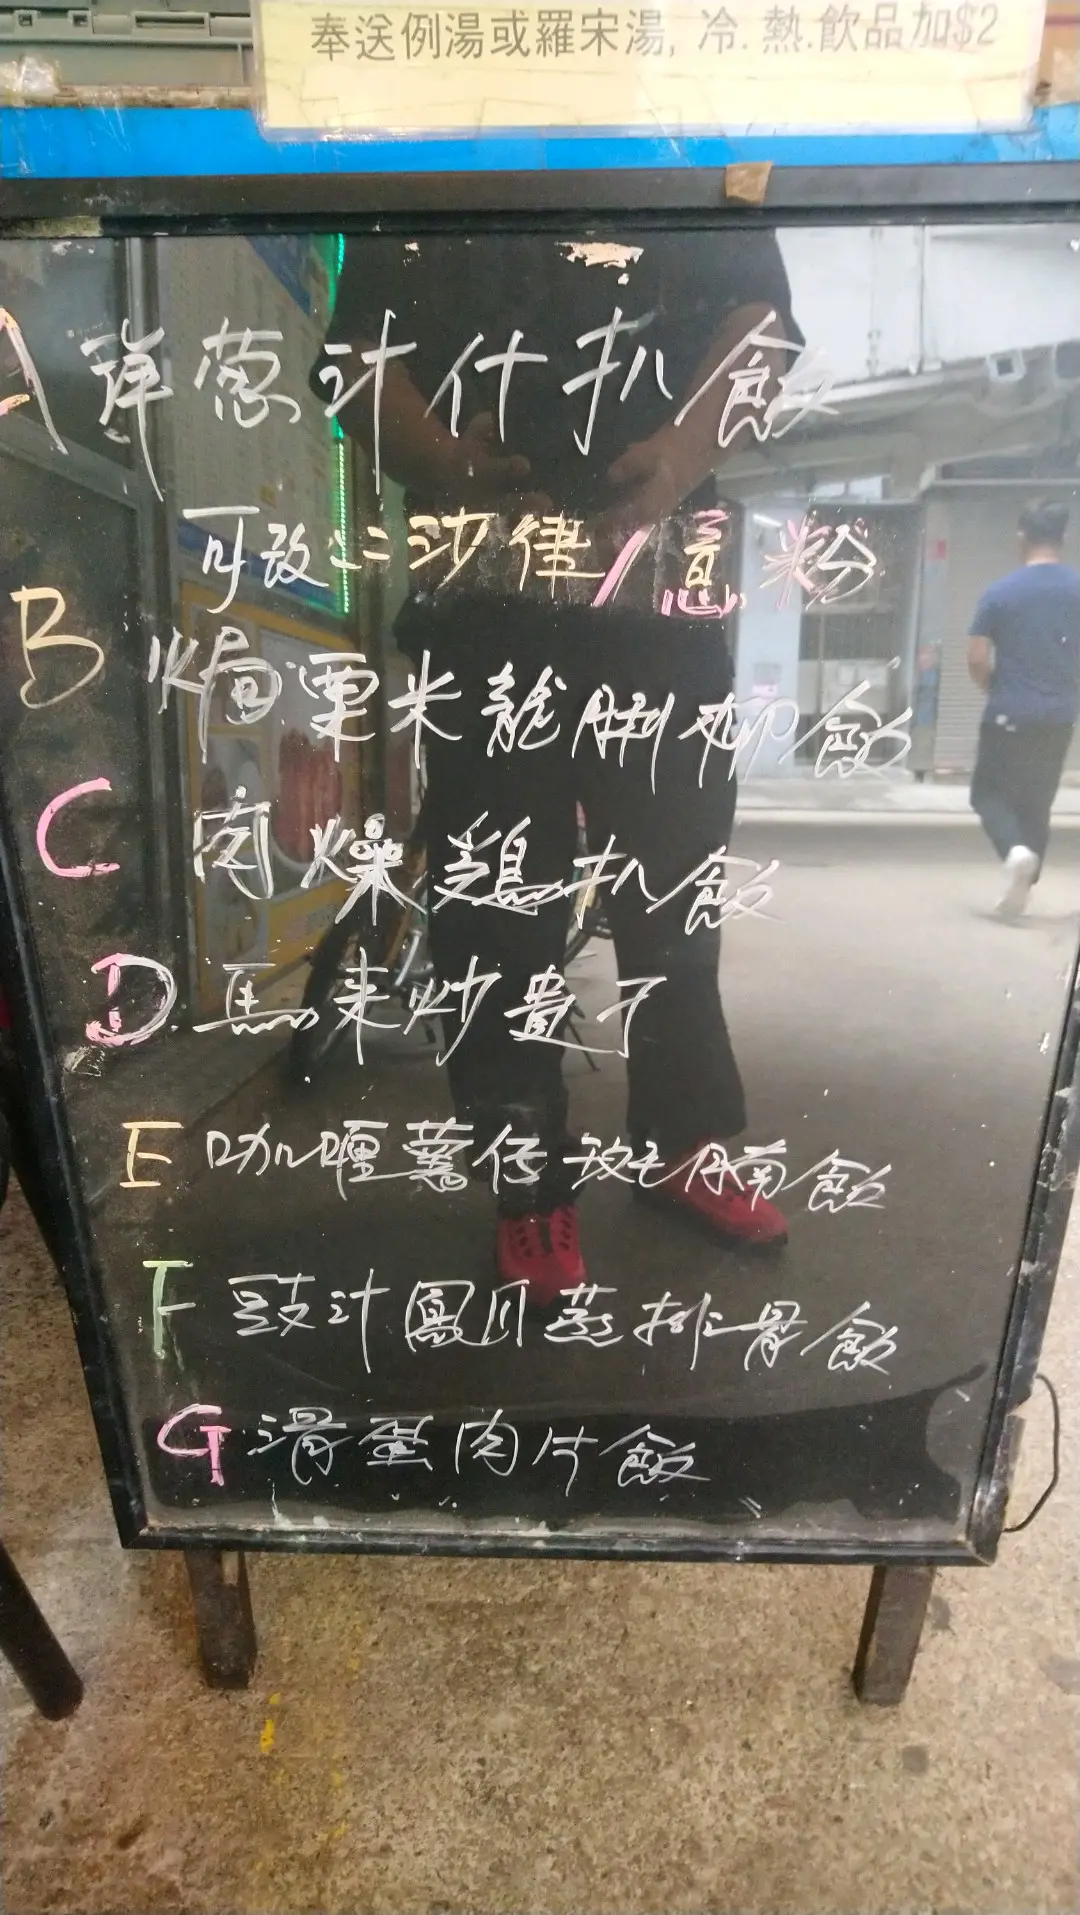 奉送例湯或羅宋湯, 冷.熱.飲品加$2
A 洋葱汁什扒飯
可改:沙律/意粉
B 焗粟米龍脷柳飯
C 肉燥鷄扒飯
D. 馬来炒貴刁
E 咖喱薯仔牛腩飯
F 豉汁鳳爪蒸排骨飯
G 滑蛋肉片飯